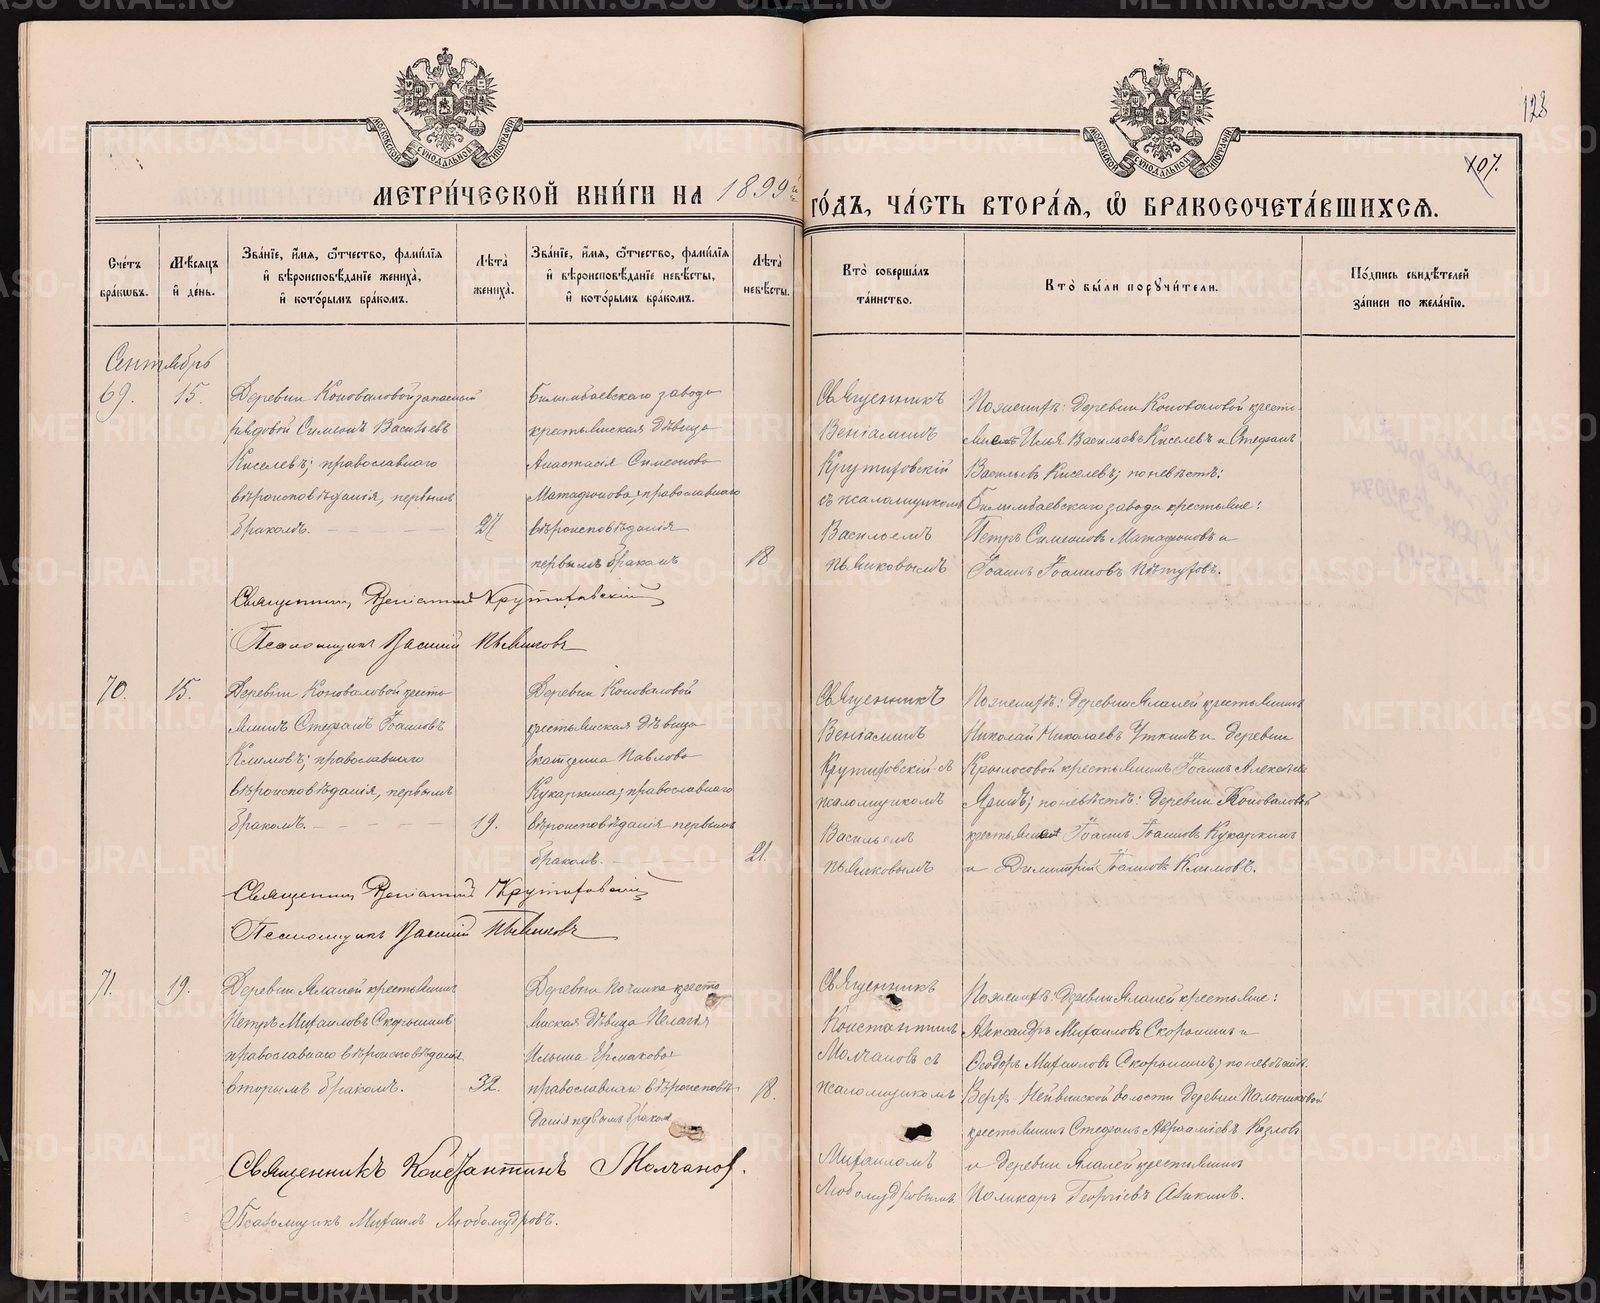 123
107.
МОСКОВСКОЙ СѴНОДАЛЬНОЙ ТИПОГРАФИИ
МОСКОВСКОЙ СѴНОДАЛЬНОЙ ТИПОГРАФИИ
МЕТРИ́ЧЕСКОЙ КНИ́ГИ НА 1899й ГО́ДЪ, ЧА́СТЬ ВТОРА́Я, Ѡ БРАКОСОЧЕТА́ВШИХСЯ.
Сче́тъ бра́кѡвъ.
Мѣ́сяцъ и҆ де́нь.
Зва́нїе, и҆́мя, ѻ҆́тчество, фами́лїя
и҆ вѣроисповѣ́данїе жениха̀,
и҆ кото́рымъ бра́комъ.
Лѣта̀ жениха̀.
Зва́нїе, и҆́мя, ѻ҆́тчество, фами́лїя
и҆ вѣроисповѣ́данїе невѣ́сты,
и҆ кото́рымъ бра́комъ.
Лѣта̀ невѣ́сты.
Кто̀ соверша́лъ
та́инство.
Кто̀ бы́ли поручи́тели.
По́дпись свидѣ́телей
за́писи по жела́нїю.
Сентябрь
69.
15.
Деревни Коноваловой запасный
рядовой Симеонъ Васильевъ
Киселевъ; православнаго
вѣроисповѣданія, первымъ
бракомъ.
27
Билимбаевскаго завода
крестьянская дѣвица
Анастасія Симеонова
Матафонова; православнаго
вѣроисповѣданія
первымъ бракомъ
18
Священникъ
Веніаминъ
Крутиховскій
съ псаломщикомъ
Васильемъ
Пьянковымъ
По женихѣ: Деревни Коноваловой кресть-
яне Илья Васильевъ Киселевъ и Стефанъ
Васильевъ Киселевъ; по невѣстѣ:
Билимбаевскаго завода крестьяне:
Петръ Симеоновъ Матафоновъ и
Іоаннъ Іоанновъ Пѣтуховъ.
Священникъ Веніаминъ Крутиховскій
Псаломщикъ Василій Пьянковъ
70.
15.
Деревни Коноваловой кресть
янинъ Стефанъ Іоанновъ
Климовъ; православнаго
вѣроисповѣданія, первымъ
бракомъ.
19.
Деревни Коноваловой
крестьянская дѣвица
Екатерина Павлова
Кукаркина; православнаго
вѣроисповѣданія первымъ
бракомъ.
21.
Священникъ
Веніаминъ
Крутиховскій съ
псаломщикомъ
Васильемъ
Пьянковымъ
По женихѣ: Деревни Ялапей крестьянинъ
Николай Николаевъ Уткинъ и Деревни
Крылосовой крестьянинъ Іоаннъ Алексѣевъ
по невѣстѣ: Деревни Коноваловой
крестьяне Іоаннъ Іоанновъ Кукаркинъ
и Димитрій Іоанновъ Климовъ.
Священникъ Веніаминъ Крутиховскій
Псаломщикъ Василій Пьянковъ
71.
19.
Деревни Ялапей крестьянинъ
Петръ Михаиловъ Скорынинъ
православнаго вѣроисповѣданія
вторымъ бракомъ.
32.
Деревни Починка кресть
янская дѣвица Пелагія
Ильина Ермакова
православнаго вѣроисповѣ-
данія первымъ бракомъ
18.
Священникъ
Константинъ
Молчановъ съ
псаломщикомъ
Михаиломъ
Любомудровымъ
По женихѣ: Деревни Ялапей крестьяне:
Александръ Михаиловъ Скорынинъ и
Ѳеодоръ Михаиловъ Скорынинъ; по невѣстѣ:
Верх-Нейвинской волости Деревни Пальниковой
крестьянинъ Стефанъ Авраамиевъ Козловъ
и Деревни Ялапей крестьянинъ
Поликарпъ Георгіевъ Аликинъ.
Священникъ Константинъ Молчановъ.
Псаломщикъ Михаилъ Любомудровъ.
METRIKI.GASO-URAL.RU